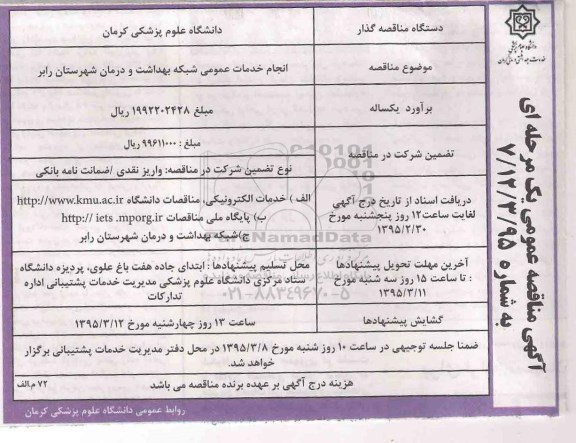 دانشگاه علوم پزشکی
آگهی مناقصه عمومی یک مرحله ای
به شماره ۷/۱۲/۳/۹۵
دستگاه مناقصه گذار
دانشگاه علوم پزشکی کرمان
موضوع مناقصه
انجام خدمات عمومی شبکه بهداشت و درمان شهرستان رابر
برآورد یکساله
مبلغ ۱۹۹۲۲۰۲۴۲۸ ریال
تضمین شرکت در مناقصه
مبلغ : ۹۹۶۱۱۰۰۰ ریال
نوع تضمین شرکت در مناقصه: واریز نقدی /ضمانت نامه بانکی
دریافت اسناد از تاریخ درج آگهی
لغایت ساعت۱۲ روز پنجشنبه مورخ
۱۳۹۵/۲/۳۰
الف ) خدمات الکترونیکی، مناقصات دانشگاه http://www.kmu.ac.ir
ب) پایگاه ملی مناقصات http:// iets .mporg.ir
ج)شبکه بهداشت و درمان شهرستان رابر
آخرین مهلت تحویل پیشنهادها
: تا ساعت ۱۵ روز سه شنبه مورخ
۱۳۹۵/۳/۱۱
محل تسلیم پیشنهادها : ابتدای جاده هفت باغ علوی، پردیزه دانشگاه
ستاد مرکزی دانشگاه علوم پزشکی مدیریت خدمات پشتیبانی اداره
تدارکات
گشایش پیشنهادها
ساعت ۱۳ روز چهارشنبه مورخ ۱۳۹۵/۳/۱۲
ضمنا جلسه توجیهی در ساعت ۱۰ روز شنبه مورخ ۱۳۹۵/۳/۸ در محل دفتر مدیریت خدمات پشتیبانی برگزار
خواهد شد.
هزینه درج آگهی بر عهده برنده مناقصه می باشد
۷۲ م.الف
روابط عمومی دانشگاه علوم پزشکی کرمان
NamadData
۰۲۱-۸۸۳۴۹۶۷۰-۵